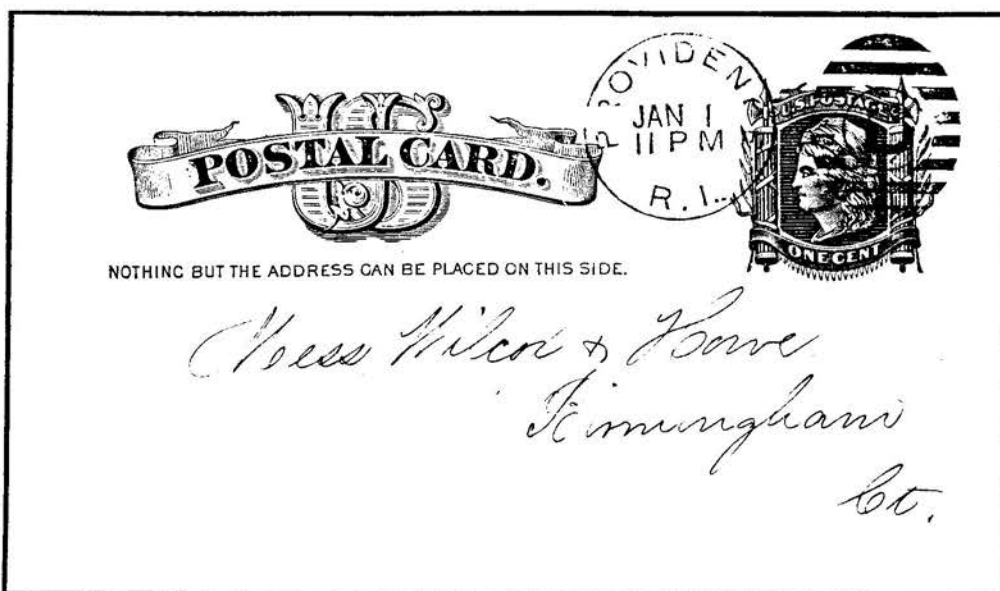 PROVIDEN
JAN 1
11 PM
R.I.
U.S. POSTAGE
US
POSTAL CARD.
ONE CENT
NOTHING BUT THE ADDRESS CAN BE PLACED ON THIS SIDE.
Mess Wilcox & Howe
Birmingham
Ct.